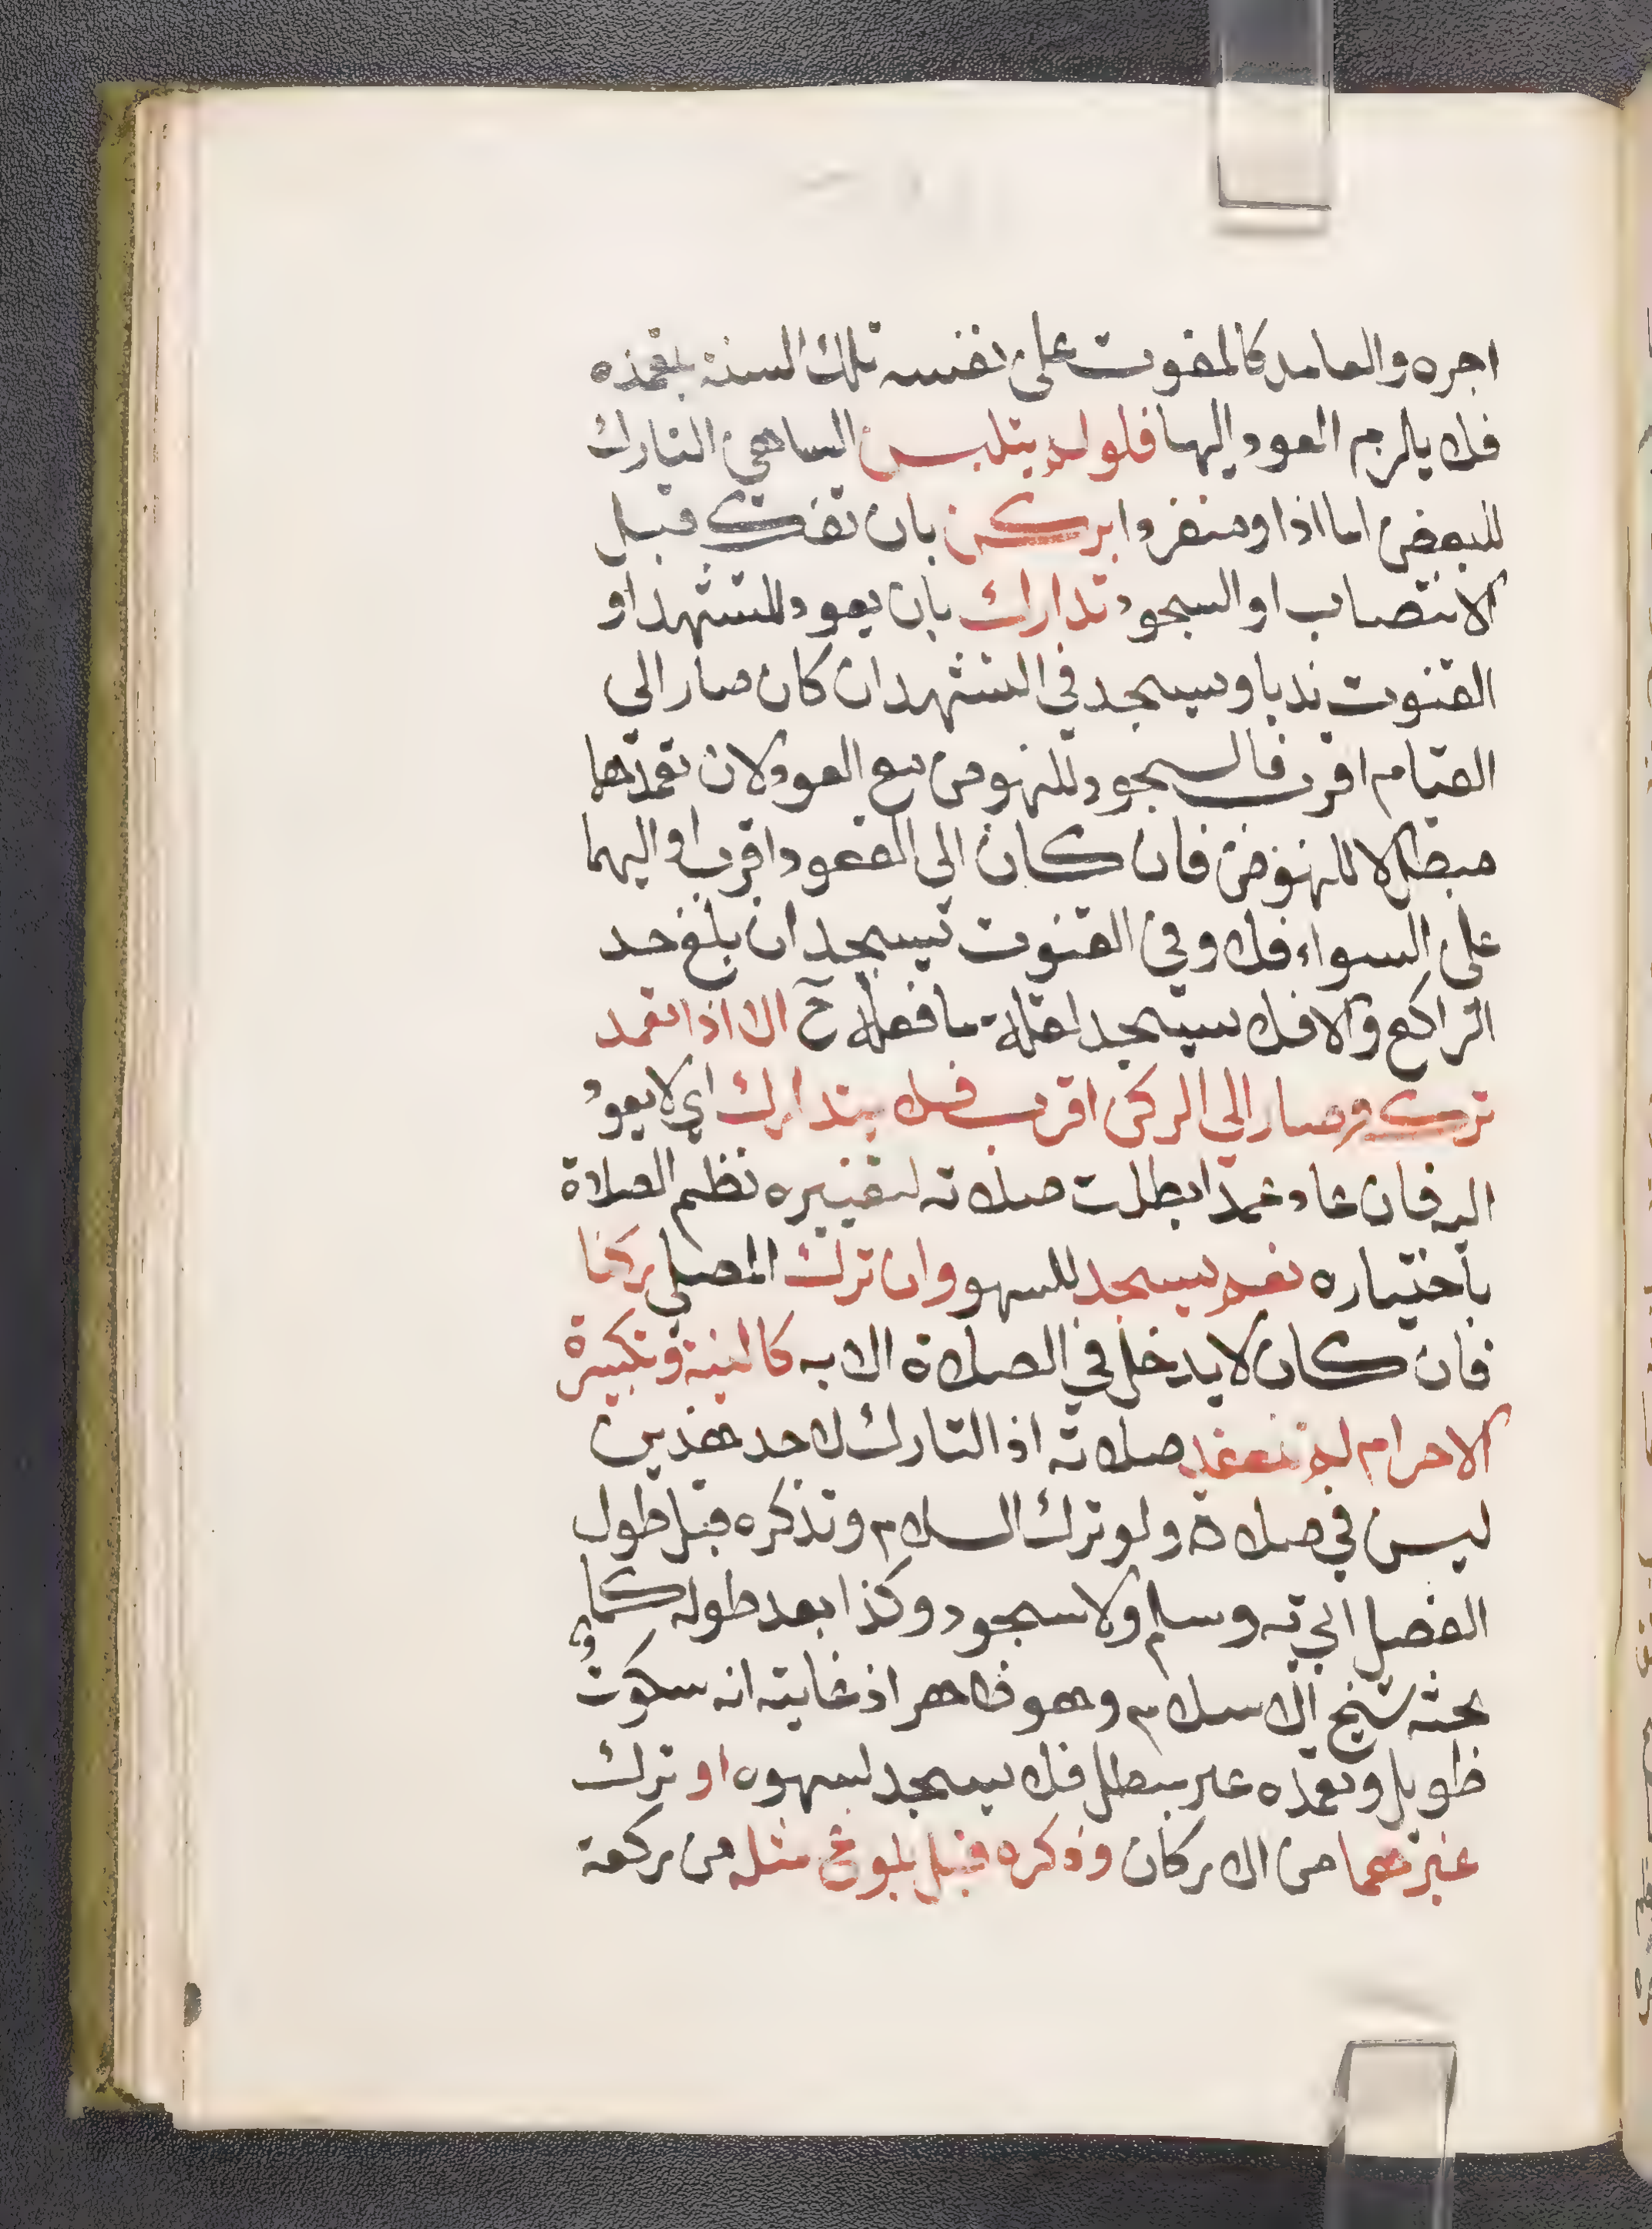 اجره والعامد كالمفوت على نفسه تلك السنة بتعمده
فلا يلزم العود اليها فلو لم يتلبس الساهي التارك
للبعض اماما او منفردا بركن بان تذكر قبل
الانتصاب او السجود تدارك بان يعود للتشهد او
القنوت ندبا وسيجد في التشهد ان كان صار الى
القيام اقرب فالسجود للنهوض مع العود لان تعمدها
مبطل لا للنهوض فان كان الى القعود اقرب او اليهما
على السواء فلا وفي القنوت يسجد ان بلغ حد
الراكع والا فلا سيسجد لقلة ما فعله ح الا اذا تعمد
تركه وصار الى الركن اقرب فلا يتدارك اي لا يعود
اليه فان عاد عمدا بطلت صلاته لتغييره نظم الصلاة
باختياره نعم يسجد للسهو وان ترك المصلي ركنا
فان كان لا يدخل في الصلاة الا به كالنية وتكبيرة
الاحرام لم تنعقد صلاته اذ التارك لاحد هذين
ليس في صلاة ولو ترك السلام وتذكره قبل طول
الفصل اتي به وسلم ولا سجود وكذا بعد طوله كما
بحثه شيخ الاسلام وهو ظاهر اذ غايته انه سكوت
طويل وتعمده غير مبطل فلا يسجد لسهوه او ترك
غيرهما من الاركان وذكره قبل بلوغ مثله من ركعة